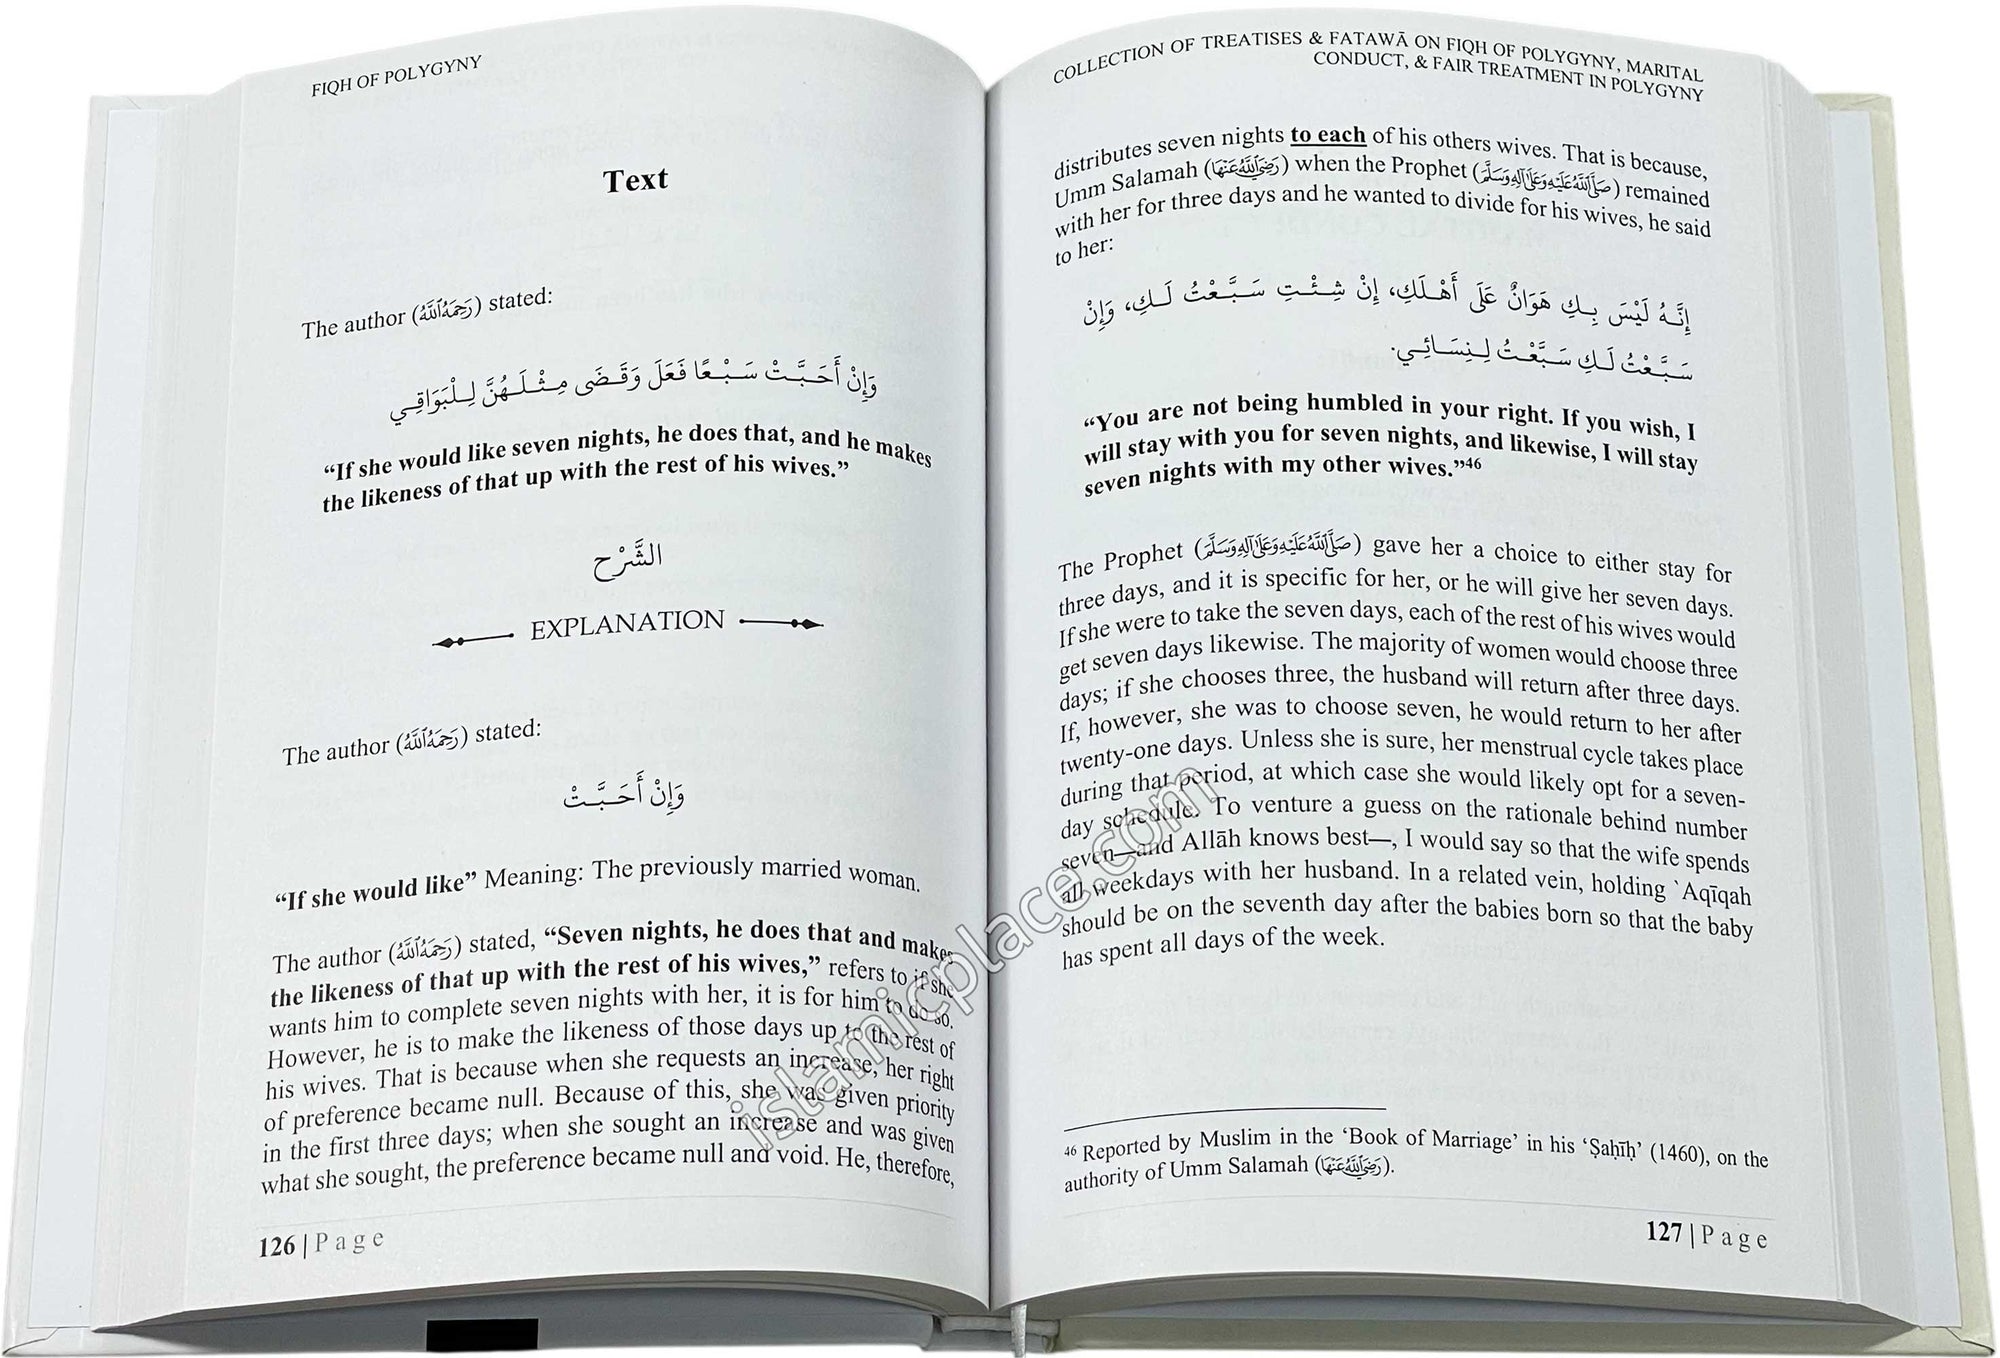 FIQH OF POLYGYNY
Text
The author (رَحِمَهُ ٱللَّهُ) stated:
وَإِنْ أَحَبَّتْ سَبْعًا فَعَلَ وَقَضَى مِثْلَهُنَّ لِلْبَوَاقِي
“If she would like seven nights, he does that, and he makes
the likeness of that up with the rest of his wives.”
الشَّرْح
EXPLANATION
The author (رَحِمَهُ ٱللَّهُ) stated:
وَإِنْ أَحَبَّتْ
“If she would like” Meaning: The previously married woman.
The author (رَحِمَهُ ٱللَّهُ) stated, “Seven nights, he does that and makes
the likeness of that up with the rest of his wives,” refers to if she
wants him to complete seven nights with her, it is for him to do so.
However, he is to make the likeness of those days up to the rest of
his wives. That is because when she requests an increase, her right
of preference became null. Because of this, she was given priority
in the first three days; when she sought an increase and was given
what she sought, the preference became null and void. He, therefore,
126 | Page
COLLECTION OF TREATISES & FATAWĀ ON FIQH OF POLYGYNY, MARITAL
CONDUCT, & FAIR TREATMENT IN POLYGYNY
distributes seven nights to each of his others wives. That is because,
Umm Salamah (رَضِيَ ٱللَّهُ عَنْهَا) when the Prophet (صَلَّى ٱللَّهُ عَلَيْهِ وَعَلَىٰ آلِهِ وَسَلَّمَ) remained
with her for three days and he wanted to divide for his wives, he said
to her:
إِنَّهُ لَيْسَ بِكِ هَوَانٌ عَلَى أَهْلَكِ، إِنْ شِئْتِ سَبَّعْتُ لَكِ، وَإِنْ
سَبَّعْتُ لَكِ سَبَّعْتُ لِنِسَائِي.
“You are not being humbled in your right. If you wish, I
will stay with you for seven nights, and likewise, I will stay
seven nights with my other wives.”46
The Prophet (صَلَّى ٱللَّهُ عَلَيْهِ وَعَلَىٰ آلِهِ وَسَلَّمَ) gave her a choice to either stay for
three days, and it is specific for her, or he will give her seven days.
If she were to take the seven days, each of the rest of his wives would
get seven days likewise. The majority of women would choose three
days; if she chooses three, the husband will return after three days.
If, however, she was to choose seven, he would return to her after
twenty-one days. Unless she is sure, her menstrual cycle takes place
during that period, at which case she would likely opt for a seven-
day schedule. To venture a guess on the rationale behind number
seven—and Allāh knows best—, I would say so that the wife spends
all weekdays with her husband. In a related vein, holding `Aqīqah
should be on the seventh day after the babies born so that the baby
has spent all days of the week.
46 Reported by Muslim in the ‘Book of Marriage’ in his ‘Ṣaḥīḥ’ (1460), on the
authority of Umm Salamah (رَضِيَ ٱللَّهُ عَنْهَا).
127 | Page
islamicplace.com